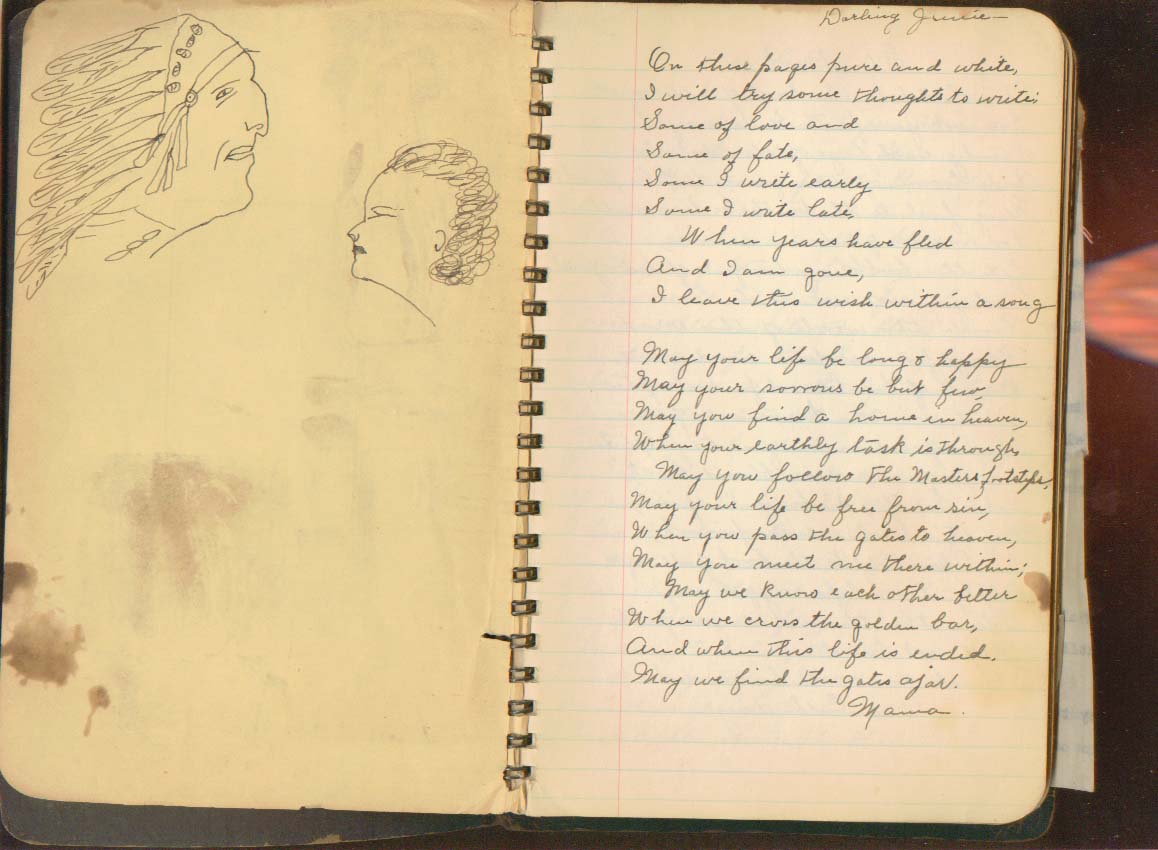 Darling Junie—
On these pages pure and white,
I will try some thoughts to write;
Some of love and
Some of fate,
Some I write early
Some I write late,
When years have fled
And I am gone,
I leave this wish within a song
May your life be long & happy
May your sorrows be but few,
May you find a home in heaven,
When your earthly task is through,
May you follow the Masters footsteps,
May your life be free from sin,
When you pass the gates to heaven,
May you meet me there within;
May we know each other better
When we cross the golden bar,
And when this life is ended.
May we find the gates ajar.
Mama.